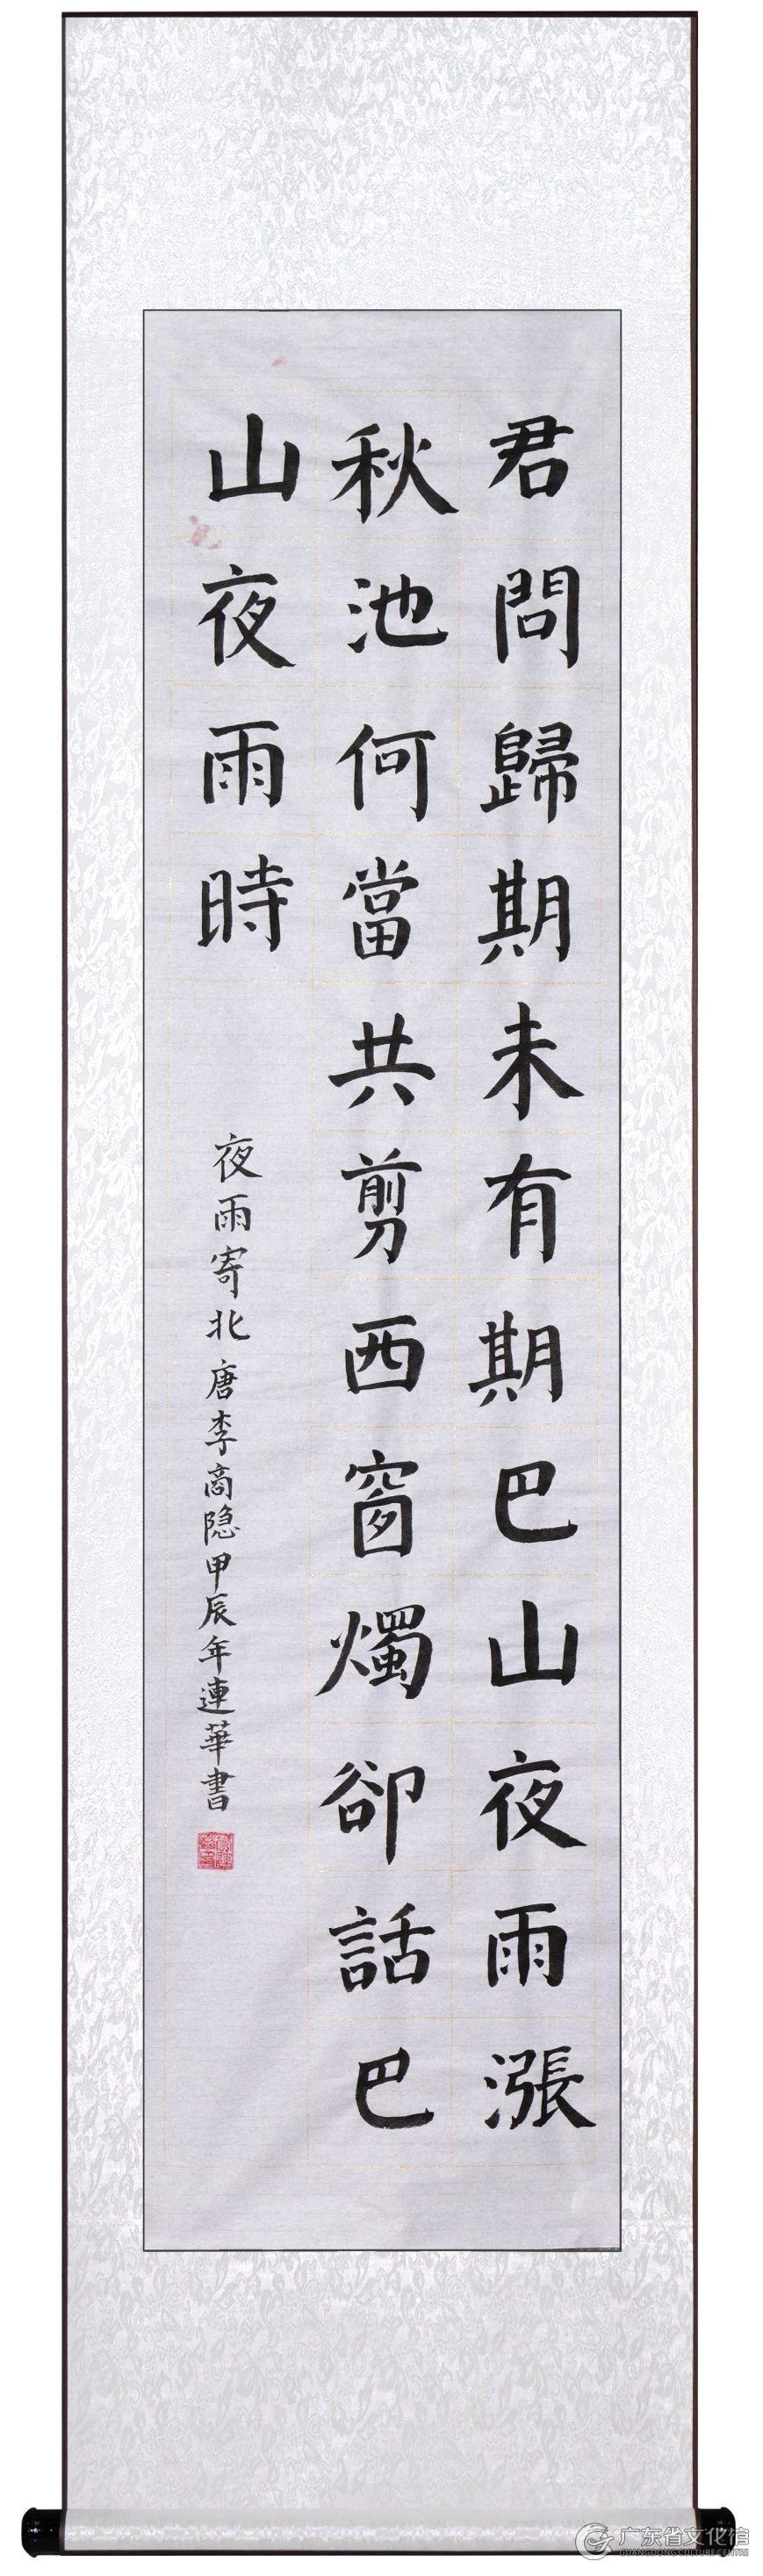 君問歸期未有期巴山夜雨漲
秋池何當共剪西窗燭卻話巴
山夜雨時
夜雨寄北唐李商隐甲辰年連華書
广东省文化馆
GUANGDONG CULTURE CENTRE